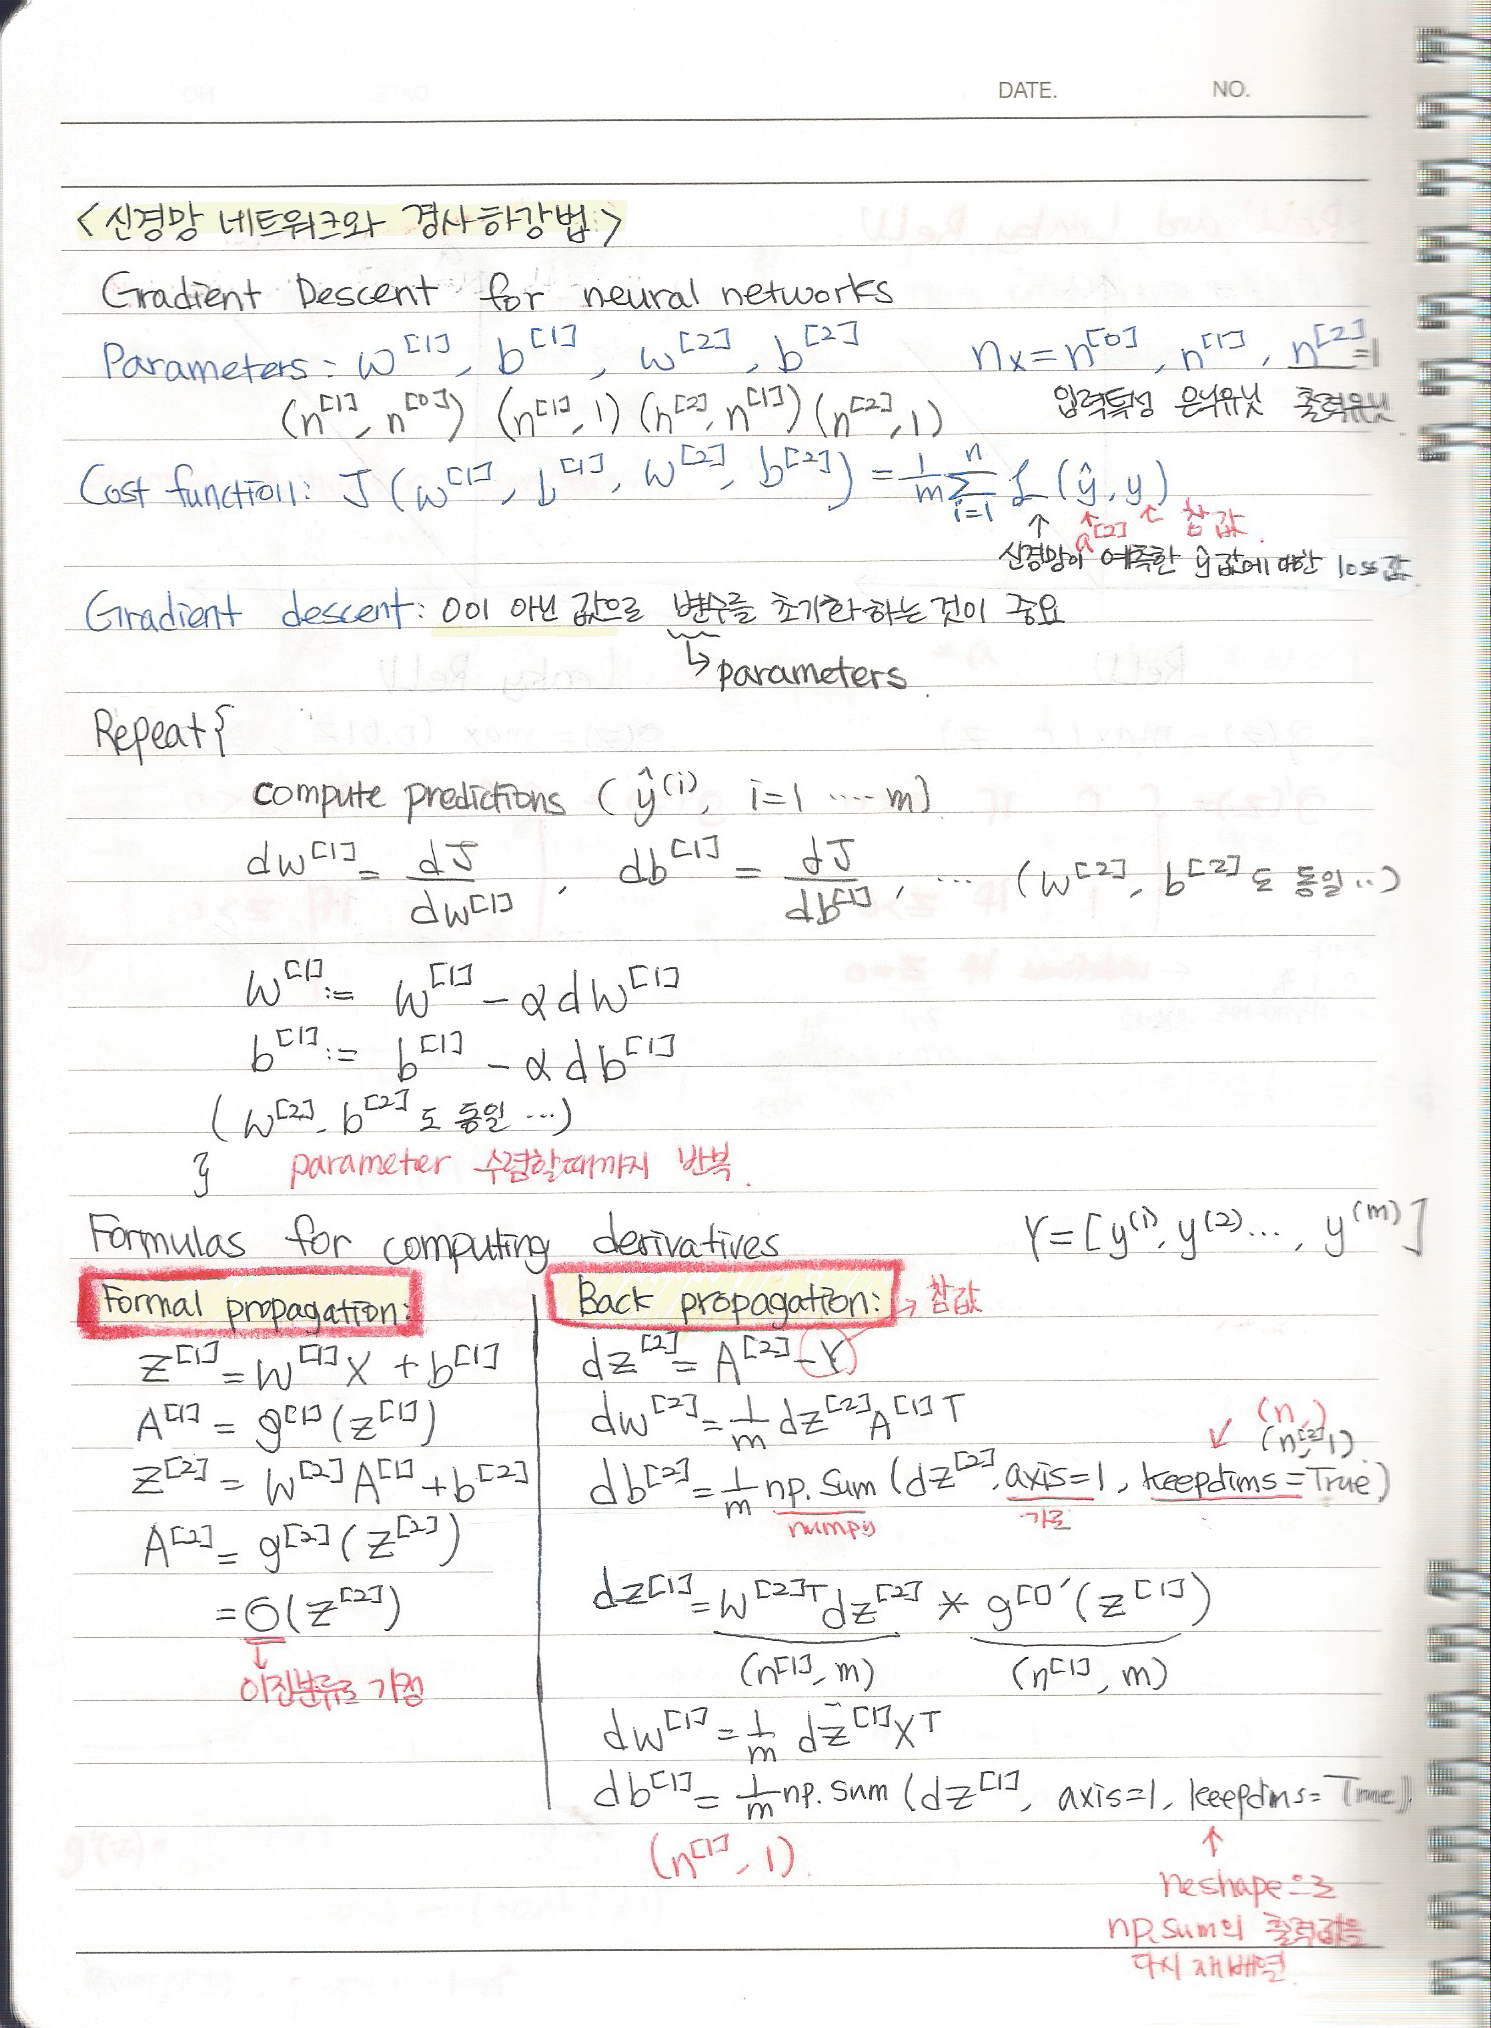 DATE. NO.
<신경망 네트워크와 경사하강법>
Gradient Descent for neural networks
Parameters: w^[1], b^[1], w^[2], b^[2] n_x = n^[0], n^[1], n^[2]=1
(n^[1], n^[0]) (n^[1], 1) (n^[2], n^[1]) (n^[2], 1) 입력특성 은닉유닛 출력유닛
Cost function: J(w^[1], b^[1], w^[2], b^[2]) = 1/m Σ_{i=1}^{n} L(ŷ, y)
↑ ↑ a^[2] ↑ 참값.
신경망이 예측한 ŷ값에 대한 loss값
Gradient descent: 0이 아닌 값으로 변수를 초기화 하는 것이 중요
↳ parameters.
Repeat {
compute predictions (ŷ^(i), i=1 ····· m)
dw^[1] = dJ/dw^[1], db^[1] = dJ/db^[1], ··· (w^[2], b^[2]도 동일··)
w^[1] := w^[1] - α dw^[1]
b^[1] := b^[1] - α db^[1]
(w^[2], b^[2]도 동일 ···)
} parameter 수렴할때까지 반복.
Formulas for computing derivatives Y=[y^(1), y^(2)···, y^(m)]
Formal propagation: Back propagation: → 참값
z^[1] = w^[1]X + b^[1]
A^[1] = g^[1](z^[1])
z^[2] = w^[2]A^[1] + b^[2]
A^[2] = g^[2](z^[2])
= σ(z^[2])
↓
이진분류로 가정
dz^[2] = A^[2] - Y
dw^[2] = 1/m dz^[2]A^[1]T
(n,)
↙ (n^[2], 1).
db^[2] = 1/m np.sum(dz^[2], axis=1, keepdims=True)
numpy 가로
dz^[1] = w^[2]T dz^[2] * g^[1]'(z^[1])
(n^[1], m) (n^[1], m)
dw^[1] = 1/m dz^[1]X^T
db^[1] = 1/m np.sum(dz^[1], axis=1, keepdms=True)
(n^[1], 1). ↑
reshape으로
np.sum의 출력값을
다시 재배열.